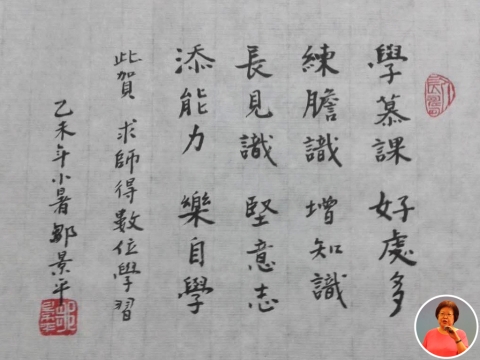 學慕課 好處多
練膽識 增知識
長見識 堅意志
添能力 樂自學
此賀 求師得數位學習
乙未年小暑 鄒景平